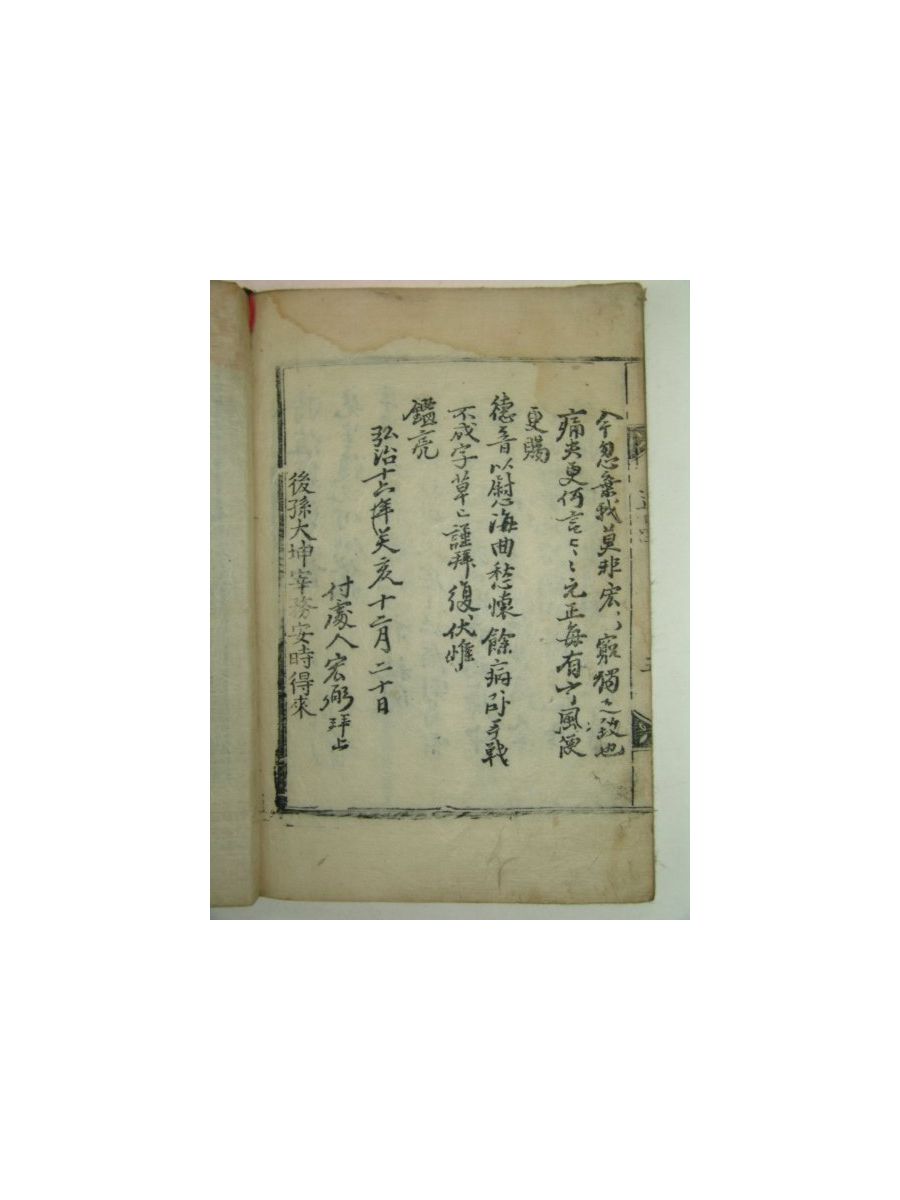 今忽棄我莫非宏〻窮獨之致也
痛哭更何言〻〻元正每有宁風便
更賜
德音以慰海曲愁懷餘病卧手戰
不成字草〻謹拜復伏惟
鑑亮
弘治十六年癸亥十二月二十日
付處人宏弼拜上
後孫大坤宰務安時得來